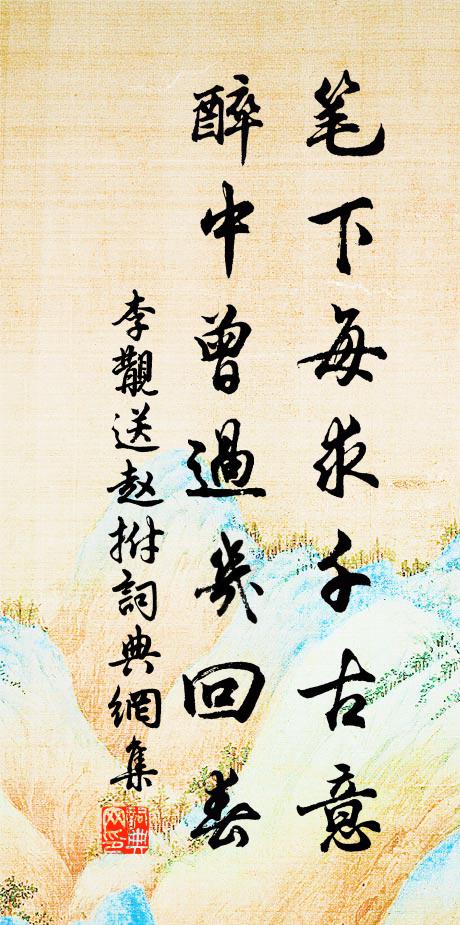 笔下每求千古意
醉中曾過幾回春
李觀送赵拊詞典網集
詞典
网印